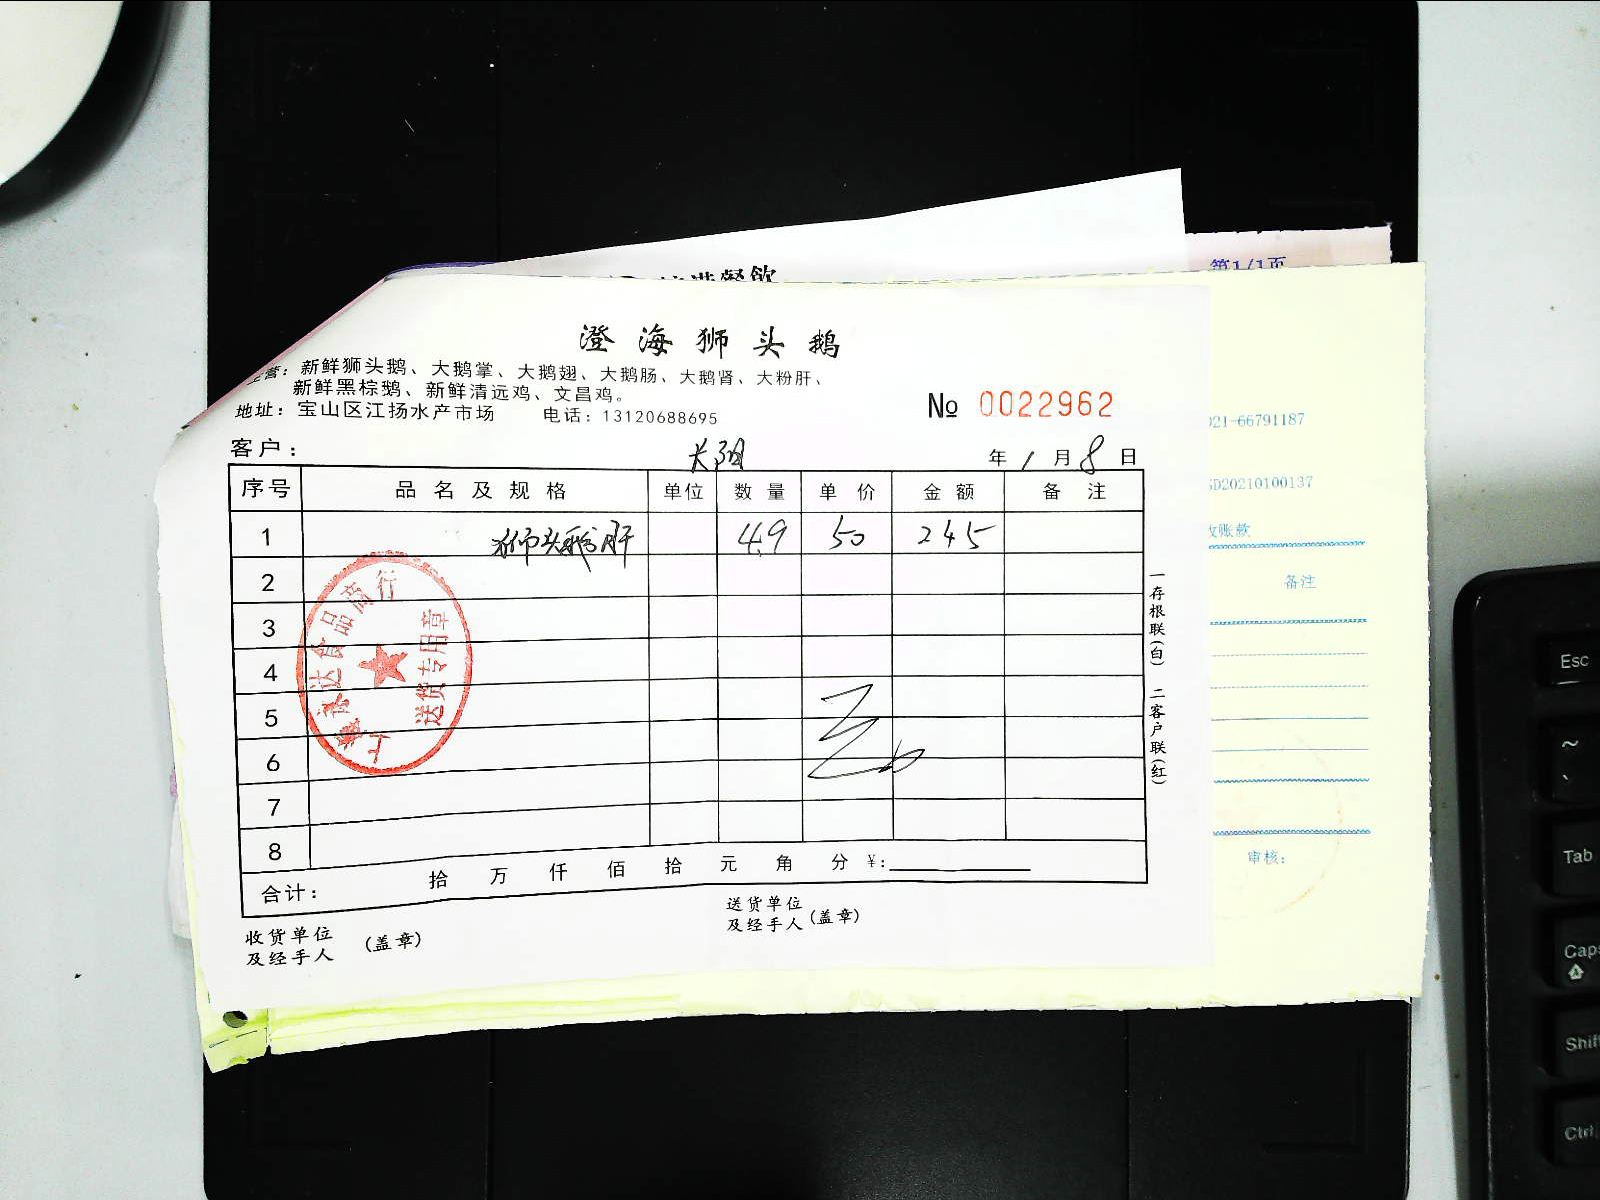 港餐饮
第1/1页
澄海狮头鹅
主营：新鲜狮头鹅、大鹅掌、大鹅翅、大鹅肠、大鹅肾、大粉肝、
新鲜黑棕鹅、新鲜清远鸡、文昌鸡。
地址：宝山区江扬水产市场 电话：13120688695
№ 0022962
客户： 年 1 月 8 日
序号 品名及规格 单位 数量 单价 金额 备注
1 狮头鹅肝 4.9 50 245
2
3
4
5
6
7
8
合计： 拾 万 仟 佰 拾 元 角 分 ¥：
收货单位
及经手人 (盖章)
送货单位
及经手人 (盖章)
一存根联(白) 二客户联(红)
达食品商行
送货专用章
021-66791187
SD20210100137
收账款
备注
审核：
Esc
~
`
Tab
Caps
Shift
Ctrl